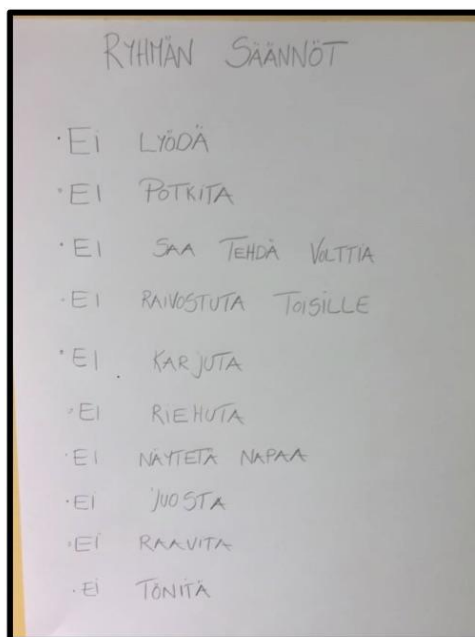 RYHMÄN SÄÄNNÖT
· Ei LYÖDÄ
· EI POTKITA
· EI SAA TEHDÄ VOLTTIA
· EI RAIVOSTUTA TOISILLE
· EI KARJUTA
· EI RIEHUTA
· EI NÄYTETÄ NAPAA
· EI JUOSTA
· EI RAAVITA
· Ei TÖNITÄ